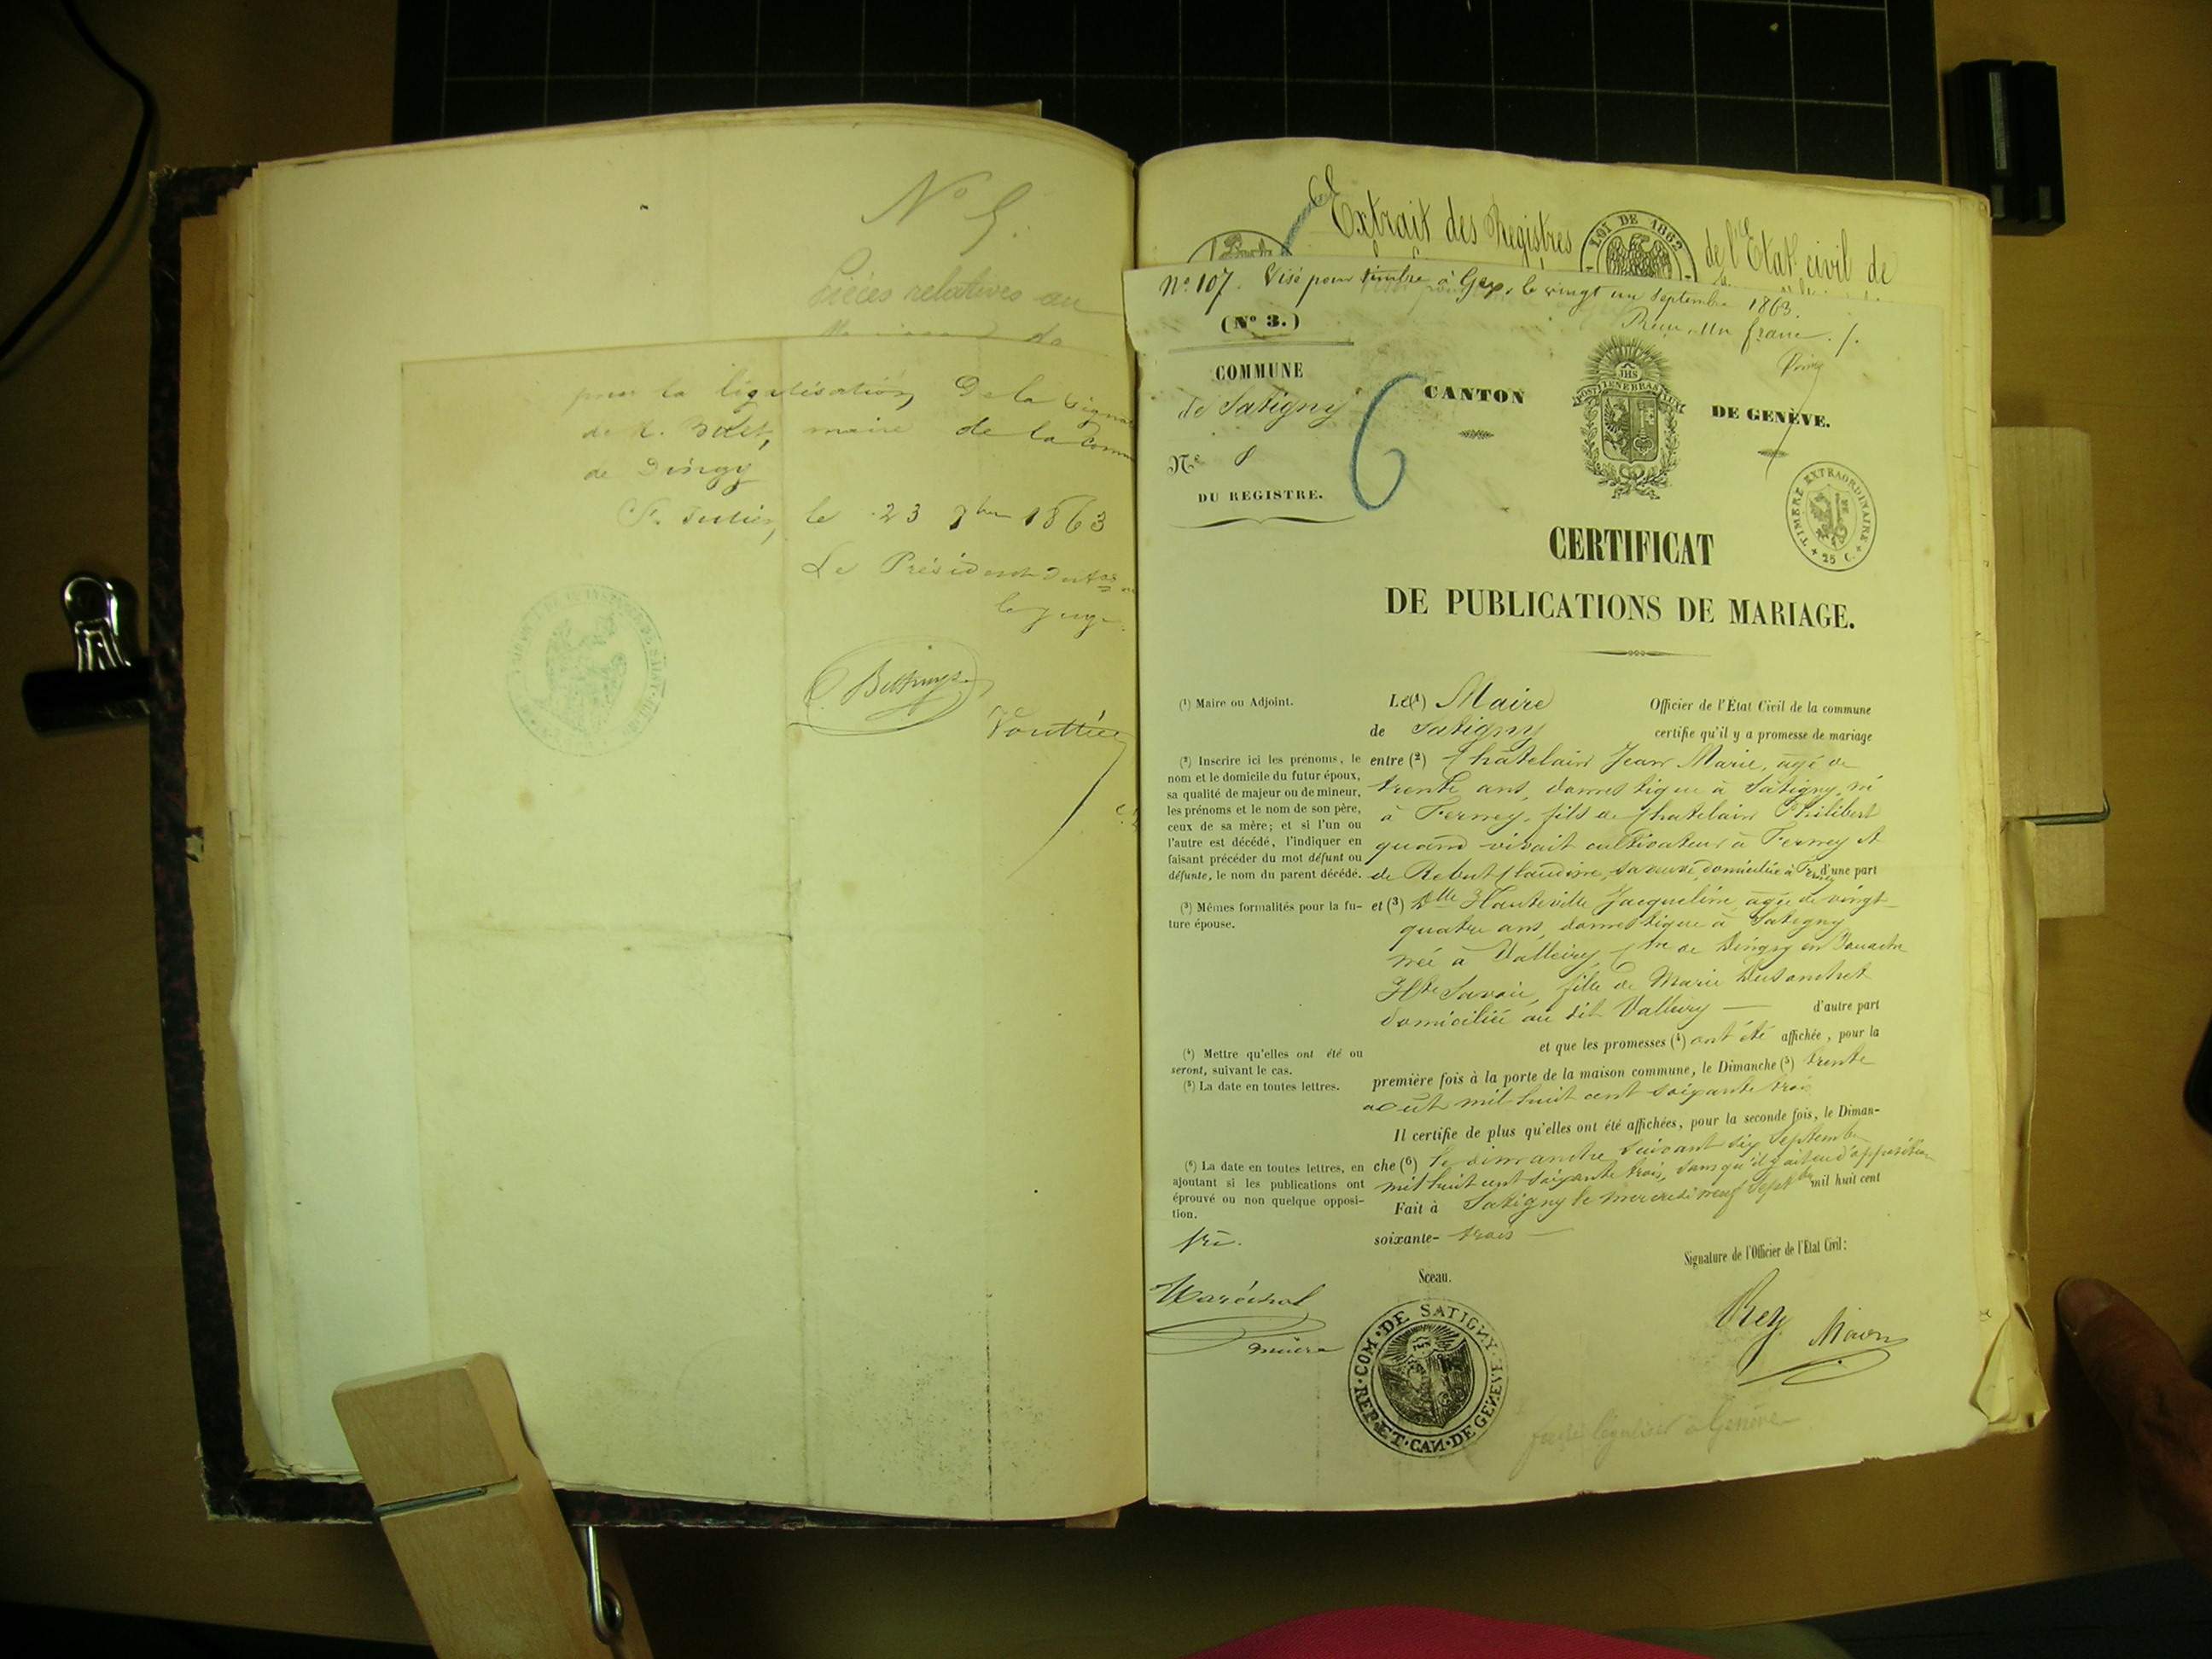 N° 5.
Pièces relatives au
pour la légalisation De la Signa
de M. maire de la Comm
de Dingy
St. Julien, le 23 7bre 1863
Le Président
le juge
Extrait des Registres de l'Etat civil de
LOI DE 1862
N° 107. Visé pour timbre à Gex, le vingt un Septembre 1863.
Reçu Un franc.
(N° 3.)
COMMUNE
de Satigny
N° 8
DU REGISTRE.
6
CANTON DE GENÈVE.
POST TENEBRAS LUX
IHS
TIMBRE EXTRAORDINAIRE
25 C.
CERTIFICAT
DE PUBLICATIONS DE MARIAGE.
(1) Maire ou Adjoint.
Le (1) Maire Officier de l'État Civil de la commune
de Satigny certifie qu'il y a promesse de mariage
(2) Inscrire ici les prénoms, le
nom et le domicile du futur époux,
sa qualité de majeur ou de mineur,
les prénoms et le nom de son père,
ceux de sa mère; et si l'un ou
l'autre est décédé, l'indiquer en
faisant précéder du mot défunt ou
défunte, le nom du parent décédé.
entre (2) Chatelain Jean Marie, agé de
trente ans, domestique à Satigny, né
à Ferney, fils de Chatelain Philibert
quand vivait cultivateur à Ferney et
de Claudine, sa veuve, domiciliée à Ferney d'une part
(3) Mêmes formalités pour la fu-
ture épouse.
et (3) Dlle Hauteville Jacqueline agée de vingt
quatre ans, domestique à Satigny
née à Valleiry, Cne de Dingy en Vuache
Hte Savoie, fille de Marie
domiciliée au dit Valleiry — d'autre part
(4) Mettre qu'elles ont été ou
seront, suivant le cas.
(5) La date en toutes lettres.
et que les promesses (4) ont été affichée, pour la
première fois à la porte de la maison commune, le Dimanche (5) trente
août mil huit cent soixante trois
Il certifie de plus qu'elles ont été affichées, pour la seconde fois, le Diman-
(6) La date en toutes lettres, en
ajoutant si les publications ont
éprouvé ou non quelque opposi-
tion.
che (6) le dimanche suivant six Septembre
mil huit cent soixante trois, sans qu'il y ait eu d'opposition
Fait à Satigny le mercredi neuf Septbre mil huit cent
soixante- trois —
Signature de l'Officier de l'État Civil:
Sceau.
Maréchal
Rey Maire
COM. DE SATIGNY
REP. ET CAN. DE GENEVE
légaliser à Genève